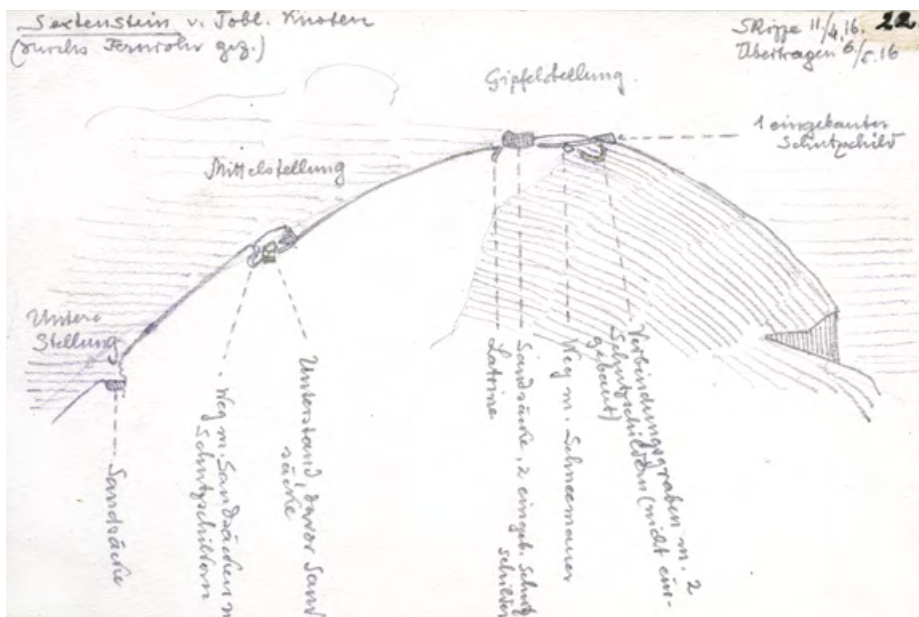 Sextenstein v. Tobl. Knoten
(durchs Fernrohr gez.)
Skizze 11/4.16. 22.
Übertragen 6/5.16
Gipfelstellung
1 eingebauter
Schutzschild
Mittelstellung
Untere
Stellung
Sandsäcke
Weg m. Sandsäcken u
Schutzschildern
Unterstand, davor Sand
säcke
Latrine
Sandsäcke, 2 eingeb. Schutz
schilder
Weg m. Schneemauer
Verbindungsgraben m. 2
Schutzschildern (nicht ein-
gebaut)